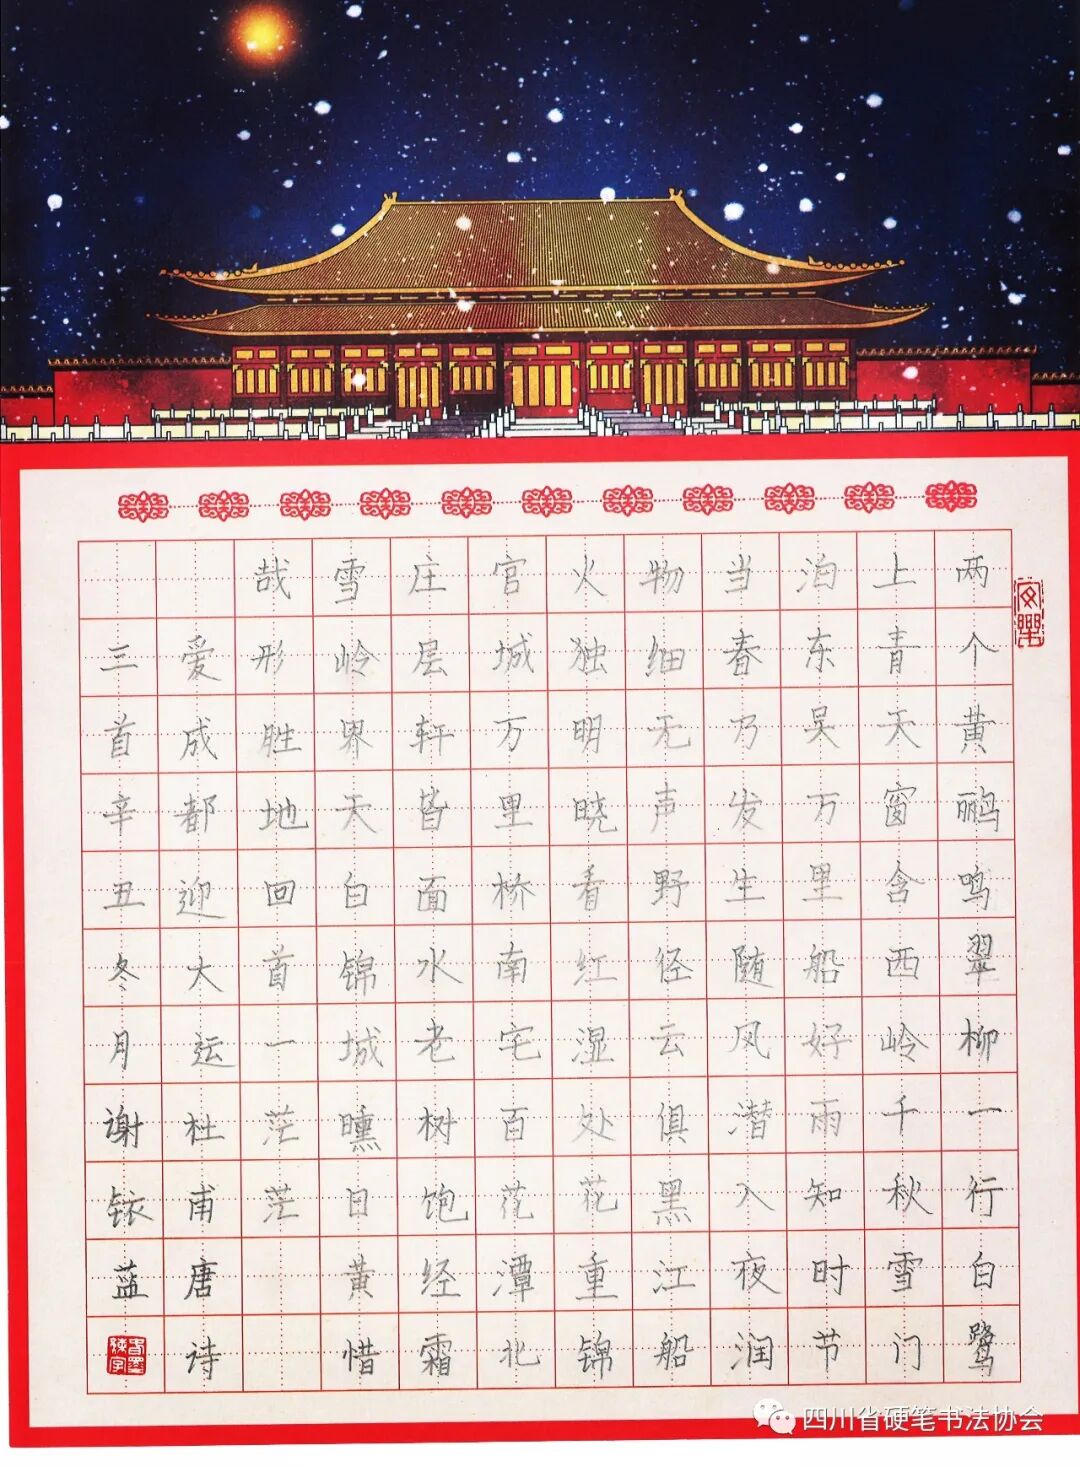 两个黄鹂鸣翠柳一行白鹭
上青天窗含西岭千秋雪门
泊东吴万里船好雨知时节
当春乃发生随风潜入夜润
物细无声野径云俱黑江船
火独明晓看红湿处花重锦
官城万里桥南宅百花潭北
庄层轩皆面水老树饱经霜
雪岭界天白锦城曛日黄惜
哉形胜地回首一茫茫
爱成都迎大运杜甫唐诗
三首辛丑冬月谢铱蓝
四川省硬笔书法协会